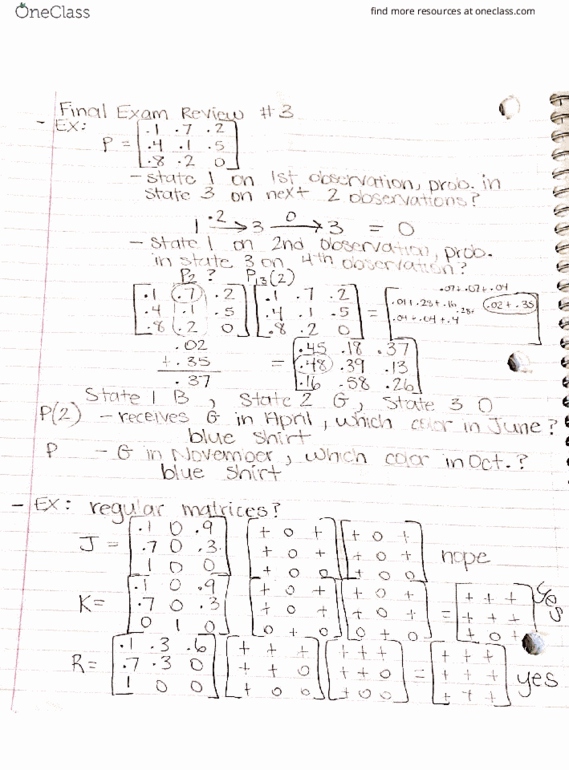 OneClass
find more resources at oneclass.com
Final Exam Review #3
- EX:
P = [.1 .7 .2
.4 .1 .5
.8 .2 0]
- state 1 on 1st observation, prob. in
state 3 on next 2 observations?
1 .2→ 3 0→ 3 = 0
- State 1 on 2nd observation, prob.
in state 3 on 4th observation?
P2 ? P13(2)
[.1 .7 .2 [.1 .7 .2 = [.01+.28+.16 .07+.07+.04 .02+.35
.4 .1 .5 .4 .1 .5
.8 .2 0] .8 .2 0]
.02
+.35
.37
= [.45 .18 .37
.48 .39 .13
.16 .58 .26]
State 1 B, State 2 G, State 3 O
P(2) - receives G in April, which color in June?
blue shirt
P - G in November, which color in Oct.?
blue shirt
- EX: regular matrices?
J = [.1 0 .9 [+ 0 + [+ 0 +
.7 0 .3 + 0 + + 0 + nope
1 0 0] + 0 0] + 0 0]
K = [.1 0 .9 [+ 0 + [+ 0 + = [+ + + yes
.7 0 .3 + 0 + + 0 + + + +
0 1 0] 0 + 0] 0 + 0] + 0 +]
R = [.1 .3 .6 [+ + + [+ + + = [+ + + yes
.7 .3 0 + + 0 + + 0 + + +
1 0 0] + 0 0] + 0 0] + + +]